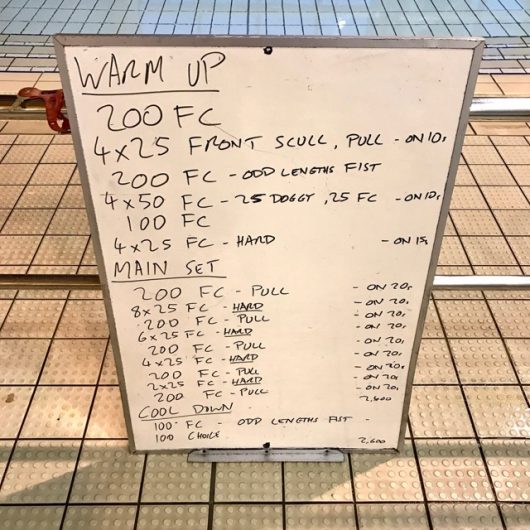 WARM UP
200 FC
4x25 FRONT SCULL, PULL - ON 10s
200 FC - ODD LENGTHS FIST
4x50 FC - 25 DOGGY, 25 FC - ON 10s
100 FC
4x25 FC - HARD - ON 15s
MAIN SET
200 FC - PULL - ON 20s
8x25 FC - HARD - ON 20s
200 FC - PULL - ON 20s
6x25 FC - HARD - ON 20s
200 FC - PULL - ON 20s
4x25 FC - HARD - ON 20s
200 FC - PULL - ON 20s
2x25 FC - HARD - ON 20s
200 FC - PULL
COOL DOWN
100 FC - ODD LENGTHS FIST -
100 CHOICE 2,600